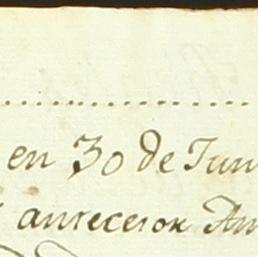 en 30 de Jun
antecesor An